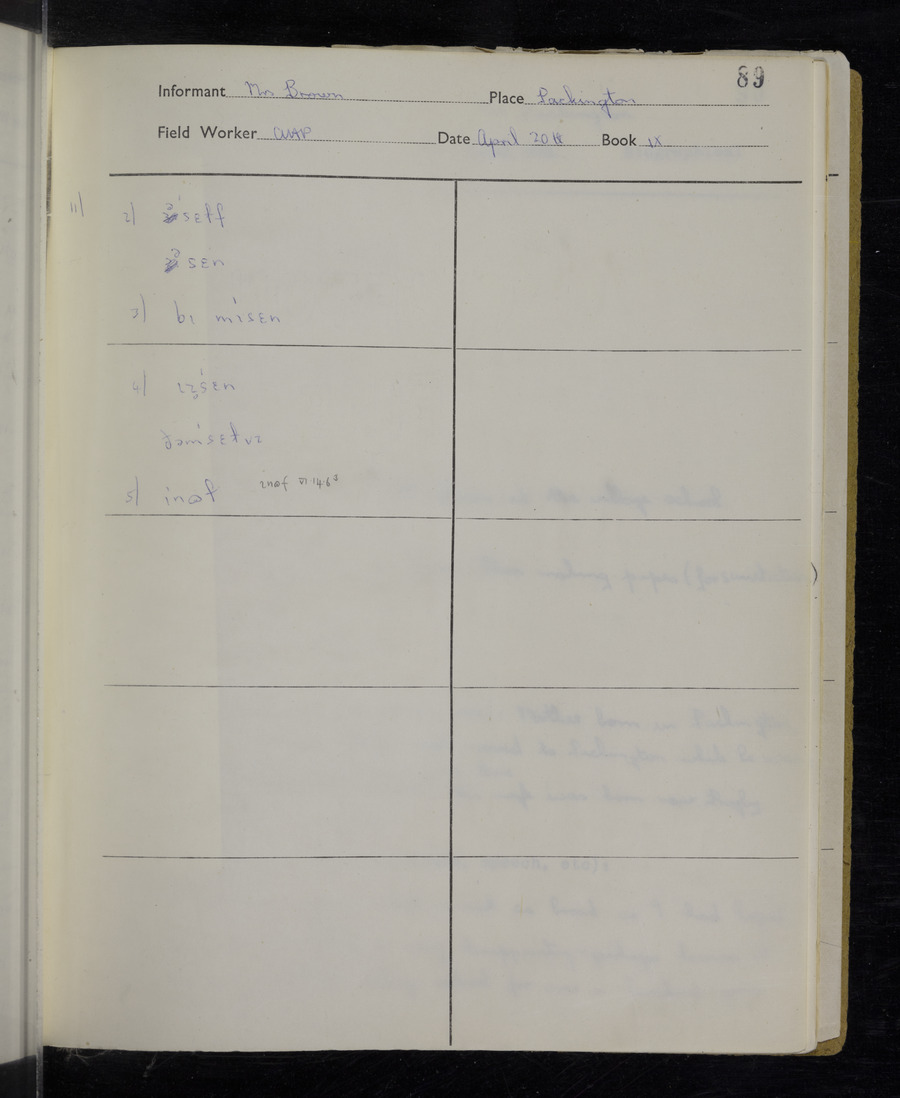 89
Informant Mr Brown Place Packington
Field Worker Date April 20th Book IX
11) 2) sɛlf
sɛn
3) bɪ mɪsɛn
4) ɪzsɛn
5) inəf ɪnəf VI.14.6